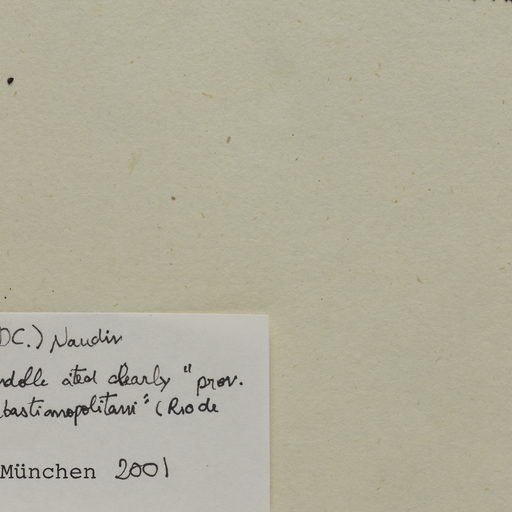 DC.) Naudin
ndolle cited clearly "prov.
bastianopolitani" (Rio de
München 2001